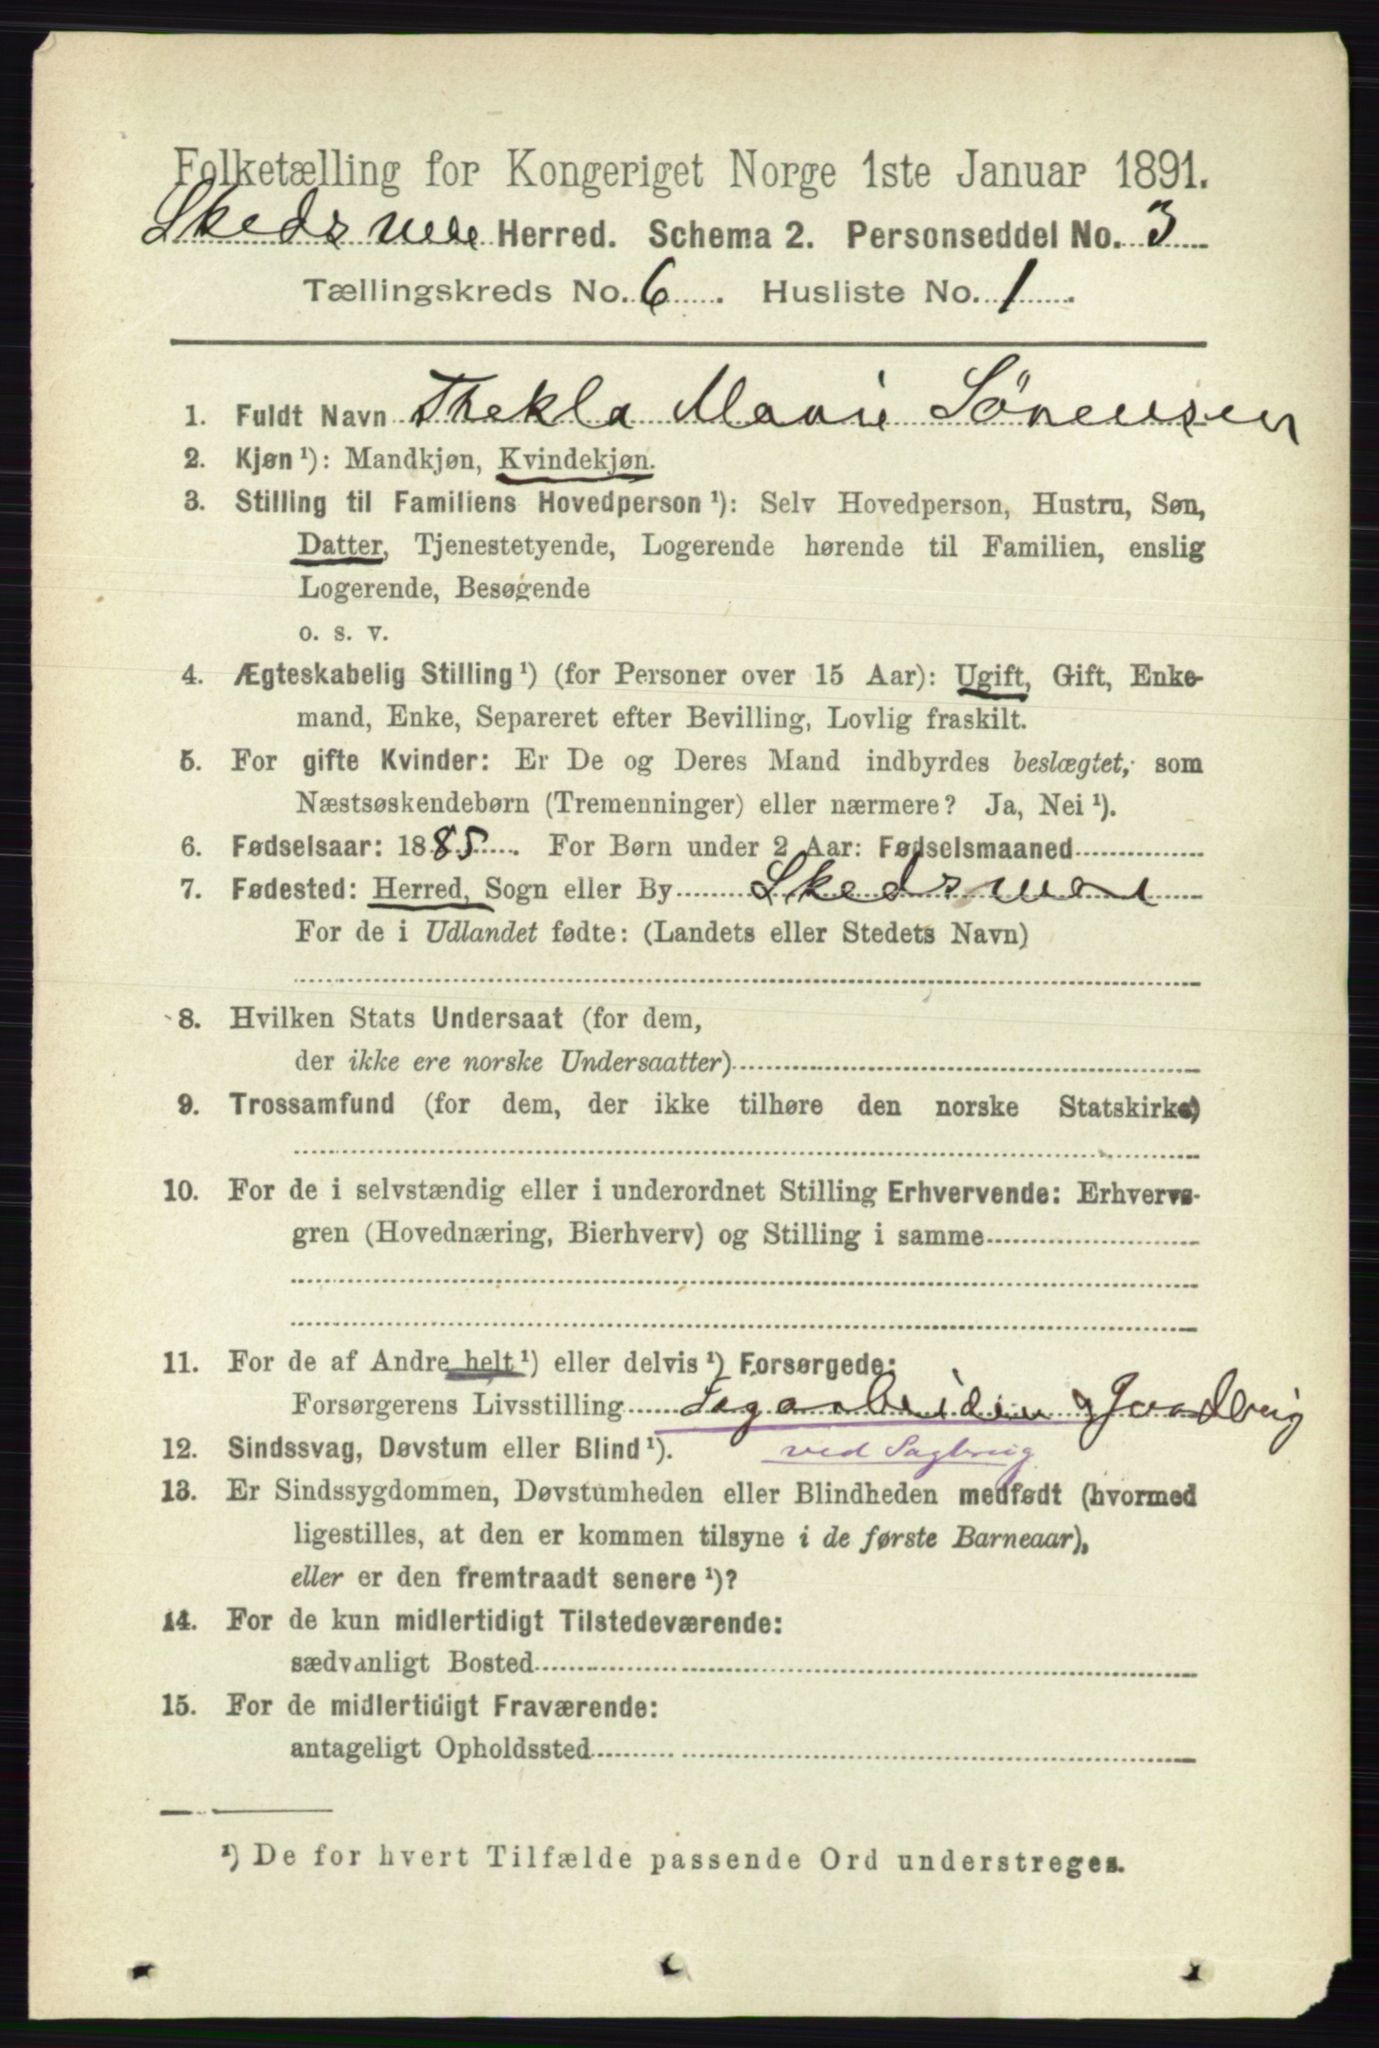 Folketælling for Kongeriget Norge 1ste Januar 1891.
Skedsmoe Herred. Schema 2. Personseddel No. 3
Tællingskreds No. 6. Husliste No. 1.
1. Fuldt Navn Thekla Marie Sörensen
2. Kjøn ¹): Mandkjøn, Kvindekjøn.
3. Stilling til Familiens Hovedperson ¹): Selv Hovedperson, Hustru, Søn,
Datter, Tjenestetyende, Logerende hørende til Familien, enslig
Logerende, Besøgende
o. s. v.
4. Ægteskabelig Stilling ¹) (for Personer over 15 Aar): Ugift, Gift, Enke-
mand, Enke, Separeret efter Bevilling, Lovlig fraskilt.
5. For gifte Kvinder: Er De og Deres Mand indbyrdes beslægtet, som
Næstsøskendebørn (Tremenninger) eller nærmere? Ja, Nei ¹).
6. Fødselsaar: 1885. For Børn under 2 Aar: Fødselsmaaned
7. Fødested: Herred, Sogn eller By Skedsmoe
For de i Udlandet fødte: (Landets eller Stedets Navn)
8. Hvilken Stats Undersaat (for dem,
der ikke ere norske Undersaatter)
9. Trossamfund (for dem, der ikke tilhøre den norske Statskirke)
10. For de i selvstændig eller i underordnet Stilling Erhvervende: Erhvervs-
gren (Hovednæring, Bierhverv) og Stilling i samme
11. For de af Andre helt ¹) eller delvis ¹) Forsørgede:
Forsørgerens Livsstilling Sagarbeider Jordbrug
ved Sagbrug
12. Sindssvag, Døvstum eller Blind ¹).
13. Er Sindssygdommen, Døvstumheden eller Blindheden medfødt (hvormed
ligestilles, at den er kommen tilsyne i de første Barneaar),
eller er den fremtraadt senere ¹)?
14. For de kun midlertidigt Tilstedeværende:
sædvanligt Bosted
15. For de midlertidigt Fraværende:
antageligt Opholdssted
¹) De for hvert Tilfælde passende Ord understreges.